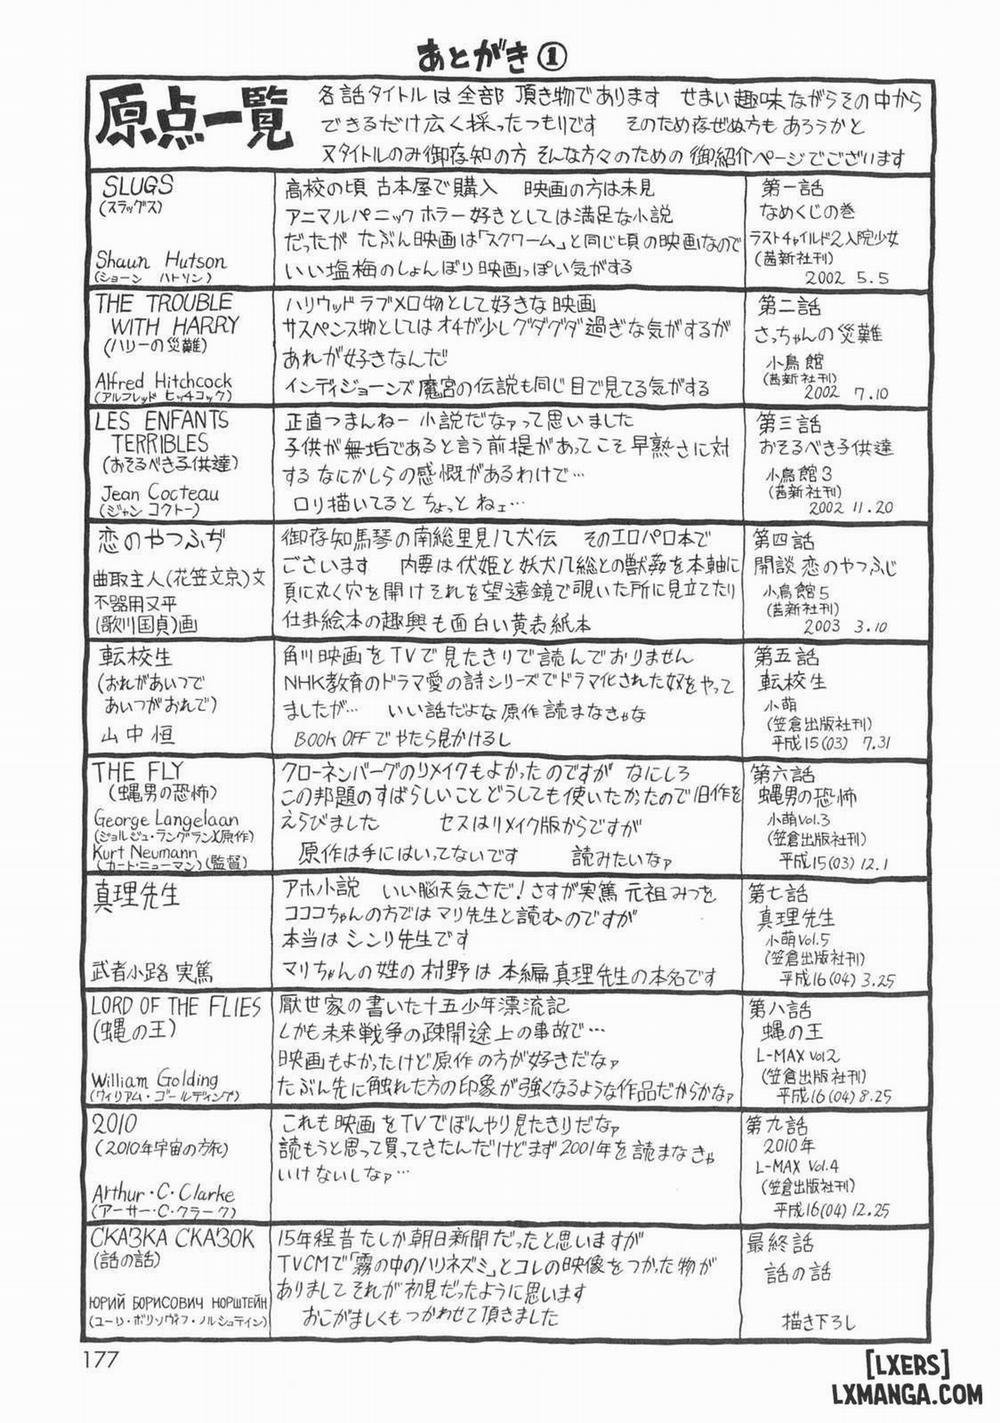 あとがき①
原点一覧
各話タイトルは全部 頂き物であります せまい趣味ながらその中から
できるだけ広く採ったつもりです そのため存ぜぬ方もあろうかと
又タイトルのみ御存知の方 そんな方々のための 御紹介ページでございます
SLUGS
(スラッグス)
Shaun Hutson
(ショーン ハトソン)
高校の頃 古本屋で購入 映画の方は未見
アニマルパニックホラー好きとしては満足な小説
だったが たぶん映画は「スクワーム」と同じ頃の映画なので
いい塩梅のしょんぼり映画っぽい気がする
第一話
なめくじの巻
ラストチャイルド2入院少女
(茜新社刊)
2002 5.5
THE TROUBLE
WITH HARRY
(ハリーの災難)
Alfred Hitchcock
(アルフレッド ヒッチコック)
ハリウッドラブメロ物として好きな映画
サスペンス物としてはオチが少しグダグダ過ぎな気がするが
あれが好きなんだ
インディジョーンズ魔宮の伝説も同じ目で見てる気がする
第二話
さっちゃんの災難
小鳥館
(茜新社刊)
2002 7.10
LES ENFANTS
TERRIBLES
(おそるべき子供達)
Jean Cocteau
(ジャン コクトー)
正直つまんねー小説だなァって思いました
子供が無垢であると言う前提があってこそ早熟さに対
するなにかしらの感慨があるわけで…
ロリ描いてるとちょっとねェ…
第三話
おそるべき子供達
小鳥館3
(茜新社刊)
2002 11.20
恋のやつふぢ
曲取主人(花笠文京)文
不器用又平
(歌川国貞)画
御存知馬琴の南総里見八犬伝 そのエロパロ本で
ございます 内要は伏姫と妖犬八総との獣姦を本軸に
頁に丸く穴を開けそれを望遠鏡で覗いた所に見立てたり
仕掛絵本の趣興も面白い黄表紙本
第四話
開談 恋のやつふじ
小鳥館5
(茜新社刊)
2003 3.10
転校生
(おれがあいつで
あいつがおれで)
山中恒
角川映画をTVで見たきりで読んでおりません
NHK教育のドラマ愛の詩シリーズでドラマ化された奴をやって
ましたが… いい話だよな原作読まなきゃな
BOOK OFFでやたら見かけるし
第五話
転校生
小萌
(笠倉出版社刊)
平成15(03) 7.31
THE FLY
(蝿男の恐怖)
George Langelaan
(ジョルジュ・ランジュラン原作)
Kurt Neumann
(カート・ニューマン)(監督)
クローネンバーグのリメイクもよかったのですが なにしろ
この邦題のすばらしいこと どうしても使いたかったので旧作を
えらびました セスはリメイク版からですが
原作は手にはいってないです 読みたいなァ
第六話
蝿男の恐怖
小萌Vol.3
(笠倉出版社刊)
平成15(03) 12.1
真理先生
武者小路 実篤
アホ小説 いい脳天気さだ!さすが実篤 元祖みつを
ココココちゃんの方ではマリ先生と読むのですが
本当はシンリ先生です
マリちゃんの姓の村野は本編真理先生の本名です
第七話
真理先生
小萌Vol.5
(笠倉出版社刊)
平成16(04) 3.25
LORD OF THE FLIES
(蝿の王)
William Golding
(ウィリアム・ゴールディング)
厭世家の書いた十五少年漂流記
しかも未来戦争の疎開途上の事故で…
映画もよかったけど原作の方が好きだなァ
たぶん先に触れた方の印象が強くなるような作品だからかなァ
第八話
蝿の王
L-MAX Vol2
(笠倉出版社刊)
平成16(04) 8.25
2010
(2010年宇宙の旅)
Arthur・C・Clarke
(アーサー・C・クラーク)
これも映画をTVでぼんやり見たきりだなァ
読もうと思って買ってきたんだけどまず2001年を読まなきゃ
いけないしなァ…
第九話
2010年
L-MAX Vol.4
(笠倉出版社刊)
平成16(04) 12.25
СКАЗКА СКАЗОК
(話の話)
ЮРИЙ БОРИСОВИЧ НОРШТЕЙН
(ユーリ・ボリソヴィフ・ノルシュテイン)
15年程昔たしか朝日新聞だったと思いますが
TVCMで「霧の中のハリネズミ」とコレの映像をつかった物が
ありましてそれが初見だったように思います
おこがましくもつかわせて頂きました
最終話
話の話
描き下ろし
177
[LXERS]
LXMANGA.COM